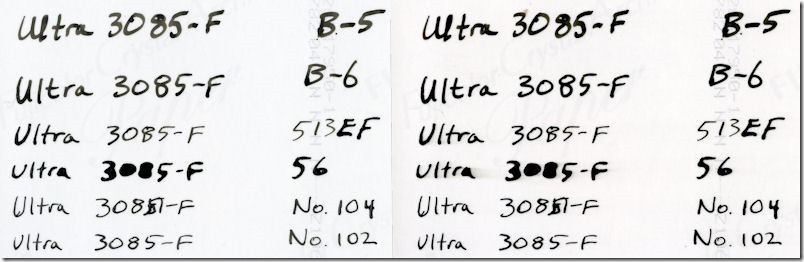 Ultra 3085-F B-5 Ultra 3085-F B-5
Ultra 3085-F B-6 Ultra 3085-F B-6
Ultra 3085-F 513EF Ultra 3085-F 513EF
Ultra 3085-F 56 Ultra 3085-F 56
Ultra 3085-F No. 104 Ultra 3085-F No. 104
Ultra 3085-F No. 102 Ultra 3085-F No. 102